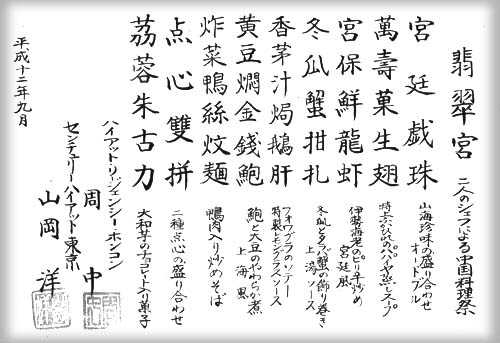 翡翠宮 二人のシェフによる中国料理祭
宮廷戯珠
山海珍味の盛り合わせ
オードブル
萬壽菓生翅
特製ふかひれのパパイヤ蒸しスープ
宮保鮮龍虾
伊勢海老のピリ辛炒め
宮廷風
冬瓜蟹拑扎
冬瓜とタラバ蟹の飾り巻き
上湯ソース
香茅汁焗鵝肝
フォワグラのソテー
特製レモングラスソース
黄豆燜金錢鮑
鮑と大豆のやわらか煮
上海風
炸菜鴨絲炆麺
鴨肉入り炒めそば
点心雙拼
二種点心の盛り合わせ
茘蓉朱古力
大和芋のチョコレート入り菓子
ハイアット・リージェンシー・ホンコン
周中
センチュリーハイアット東京
山岡洋
平成十二年九月